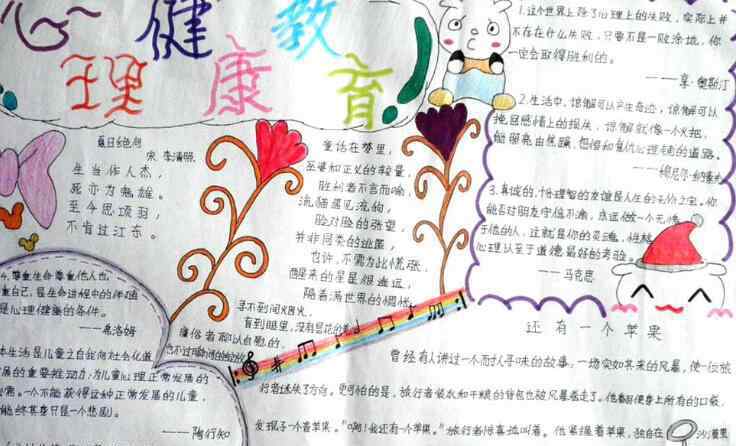 心理健康教育
夏日绝句
宋 李清照
生当作人杰,
死亦为鬼雄。
至今思项羽,
不肯过江东。
童话在梦里,
巫婆和正义的较量,
胜利者不言而喻,
流猫遇见流狗,
脸对脸的张望,
并非同类的逃匿,
也许,不需为此慌张,
醒来的星星很遥远,
隔着满世界的惆怅
寻不到间火阳火,
盲到眼里,没有昙花的美
1.这个世界上除了心理上的失败,实际上并
不存在什么失败,只要不是一败涂地,你
一定会取得胜利的。
——亨·奥斯汀
2.生活中,谅解可以产生奇迹,谅解可以
挽回感情上的损失,谅解就像一个火把,
能照亮由焦躁、怨恨和复仇心理铺就的道路。
3.真诚的、十分理智的友谊是人生的无价之宝。你
能否对朋友守信不渝,永远做一个无愧
于他的人,这就是你的灵魂、性格、
心理以至于道德最好的考验。
——马克思
4.尊重生命尊重他人也
重自己,是生命进程中的伴随
是心理健康的条件。
——弗洛姆
本生活是儿童之自我向社会化道
展的重要推动力;为儿童心理正常发展的
需。一个不能获得这种正常发展的儿童,
能终其身只是一个悲剧。
——陶行知
还有一个苹果
曾经有人讲过一个耐人寻味的故事,一场突如其来的风暴,使一位旅
行者迷失了方向。更可怕的是,旅行者装水和干粮的背包也被风暴卷走了。他翻遍身上所有的口袋,
发现了一个青苹果。"啊!我还有一个苹果。"旅行者惊喜地叫着。他紧握着苹果,独自在沙漠里